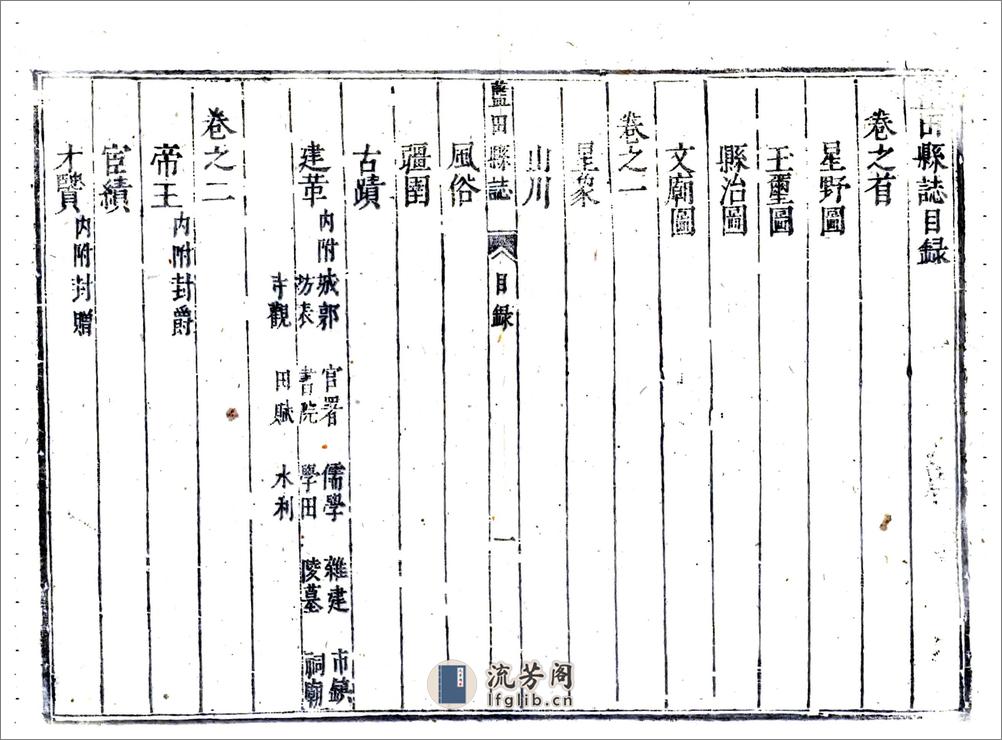 田縣誌目録
卷之首
星野圖
王璽圖
縣治圖
文廟圖
卷之一
星象
山川
藍田縣誌 目録 一
風俗
疆圉
古蹟
建革 内附 城郭 官署 儒學 雜建 市鎮
坊表 書院 學田 陵墓 祠廟
寺觀 田賦 水利
卷之二
帝王 内附封爵
宦績
才賢 内附封贈
流芳阁
lfglib.cn